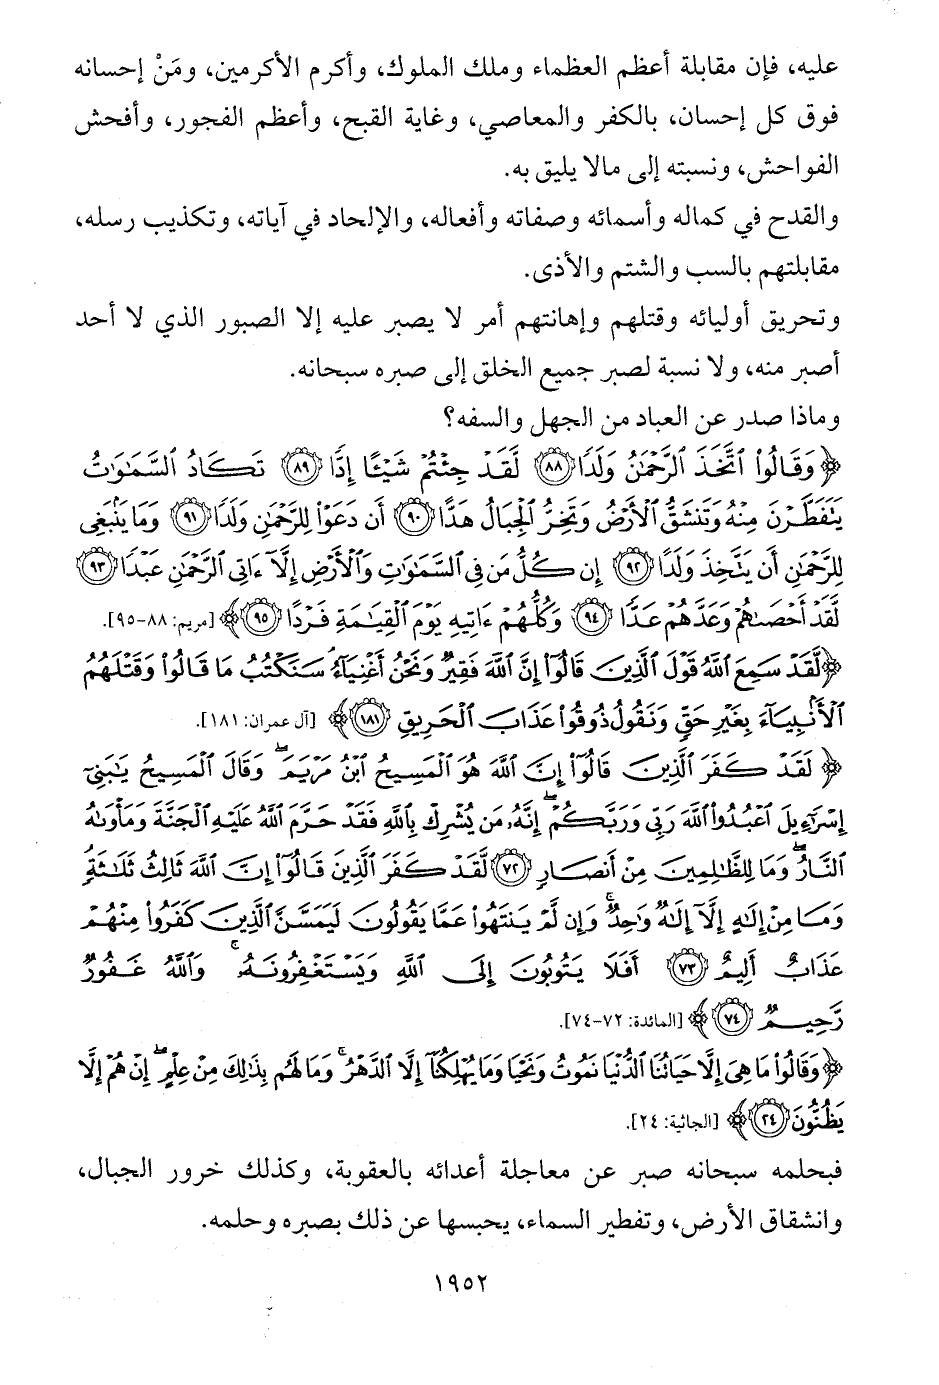 عليه، فإن مقابلة أعظم العظماء وملك الملوك، وأكرم الأكرمين، ومَنْ إحسانه
فوق كل إحسان، بالكفر والمعاصي، وغاية القبح، وأعظم الفجور، وأفحش
الفواحش، ونسبته إلى مالا يليق به.
والقدح في كماله وأسمائه وصفاته وأفعاله، والإلحاد في آياته، وتكذيب رسله،
مقابلتهم بالسب والشتم والأذى.
وتحريق أوليائه وقتلهم وإهانتهم أمر لا يصبر عليه إلا الصبور الذي لا أحد
أصبر منه، ولا نسبة لصبر جميع الخلق إلى صبره سبحانه.
وماذا صدر عن العباد من الجهل والسفه؟
﴿ وَقَالُوا۟ ٱتَّخَذَ ٱلرَّحْمَٰنُ وَلَدًا ٨٨ لَقَدْ جِئْتُمْ شَيْـًٔا إِدًّا ٨٩ تَكَادُ ٱلسَّمَٰوَٰتُ
يَتَفَطَّرْنَ مِنْهُ وَتَنشَقُّ ٱلْأَرْضُ وَتَخِرُّ ٱلْجِبَالُ هَدًّا ٩٠ أَن دَعَوْا۟ لِلرَّحْمَٰنِ وَلَدًا ٩١ وَمَا يَنۢبَغِى
لِلرَّحْمَٰنِ أَن يَتَّخِذَ وَلَدًا ٩٢ إِن كُلُّ مَن فِى ٱلسَّمَٰوَٰتِ وَٱلْأَرْضِ إِلَّآ ءَاتِى ٱلرَّحْمَٰنِ عَبْدًا ٩٣
لَّقَدْ أَحْصَىٰهُمْ وَعَدَّهُمْ عَدًّا ٩٤ وَكُلُّهُمْ ءَاتِيهِ يَوْمَ ٱلْقِيَٰمَةِ فَرْدًا ٩٥ ﴾ [مريم: ٨٨-٩٥].
﴿ لَّقَدْ سَمِعَ ٱللَّهُ قَوْلَ ٱلَّذِينَ قَالُوٓا۟ إِنَّ ٱللَّهَ فَقِيرٌ وَنَحْنُ أَغْنِيَآءُ سَنَكْتُبُ مَا قَالُوا۟ وَقَتْلَهُمُ
ٱلْأَنۢبِيَآءَ بِغَيْرِ حَقٍّ وَنَقُولُ ذُوقُوا۟ عَذَابَ ٱلْحَرِيقِ ١٨١ ﴾ [آل عمران: ١٨١].
﴿ لَقَدْ كَفَرَ ٱلَّذِينَ قَالُوٓا۟ إِنَّ ٱللَّهَ هُوَ ٱلْمَسِيحُ ٱبْنُ مَرْيَمَ ۖ وَقَالَ ٱلْمَسِيحُ يَٰبَنِىٓ
إِسْرَٰٓءِيلَ ٱعْبُدُوا۟ ٱللَّهَ رَبِّى وَرَبَّكُمْ ۖ إِنَّهُۥ مَن يُشْرِكْ بِٱللَّهِ فَقَدْ حَرَّمَ ٱللَّهُ عَلَيْهِ ٱلْجَنَّةَ وَمَأْوَىٰهُ
ٱلنَّارُ ۖ وَمَا لِلظَّٰلِمِينَ مِنْ أَنصَارٍ ٧٢ لَّقَدْ كَفَرَ ٱلَّذِينَ قَالُوٓا۟ إِنَّ ٱللَّهَ ثَالِثُ ثَلَٰثَةٍ ۘ
وَمَا مِنْ إِلَٰهٍ إِلَّآ إِلَٰهٌ وَٰحِدٌ ۚ وَإِن لَّمْ يَنتَهُوا۟ عَمَّا يَقُولُونَ لَيَمَسَّنَّ ٱلَّذِينَ كَفَرُوا۟ مِنْهُمْ
عَذَابٌ أَلِيمٌ ٧٣ أَفَلَا يَتُوبُونَ إِلَى ٱللَّهِ وَيَسْتَغْفِرُونَهُۥ ۚ وَٱللَّهُ غَفُورٌ
رَّحِيمٌ ٧٤ ﴾ [المائدة: ٧٢-٧٤].
﴿ وَقَالُوا۟ مَا هِىَ إِلَّا حَيَاتُنَا ٱلدُّنْيَا نَمُوتُ وَنَحْيَا وَمَا يُهْلِكُنَآ إِلَّا ٱلدَّهْرُ ۚ وَمَا لَهُم بِذَٰلِكَ مِنْ عِلْمٍ ۖ إِنْ هُمْ إِلَّا
يَظُنُّونَ ٢٤ ﴾ [الجاثية: ٢٤].
فبحلمه سبحانه صبر عن معاجلة أعدائه بالعقوبة، وكذلك خرور الجبال،
وانشقاق الأرض، وتفطير السماء، يحبسها عن ذلك بصبره وحلمه.
١٩٥٢